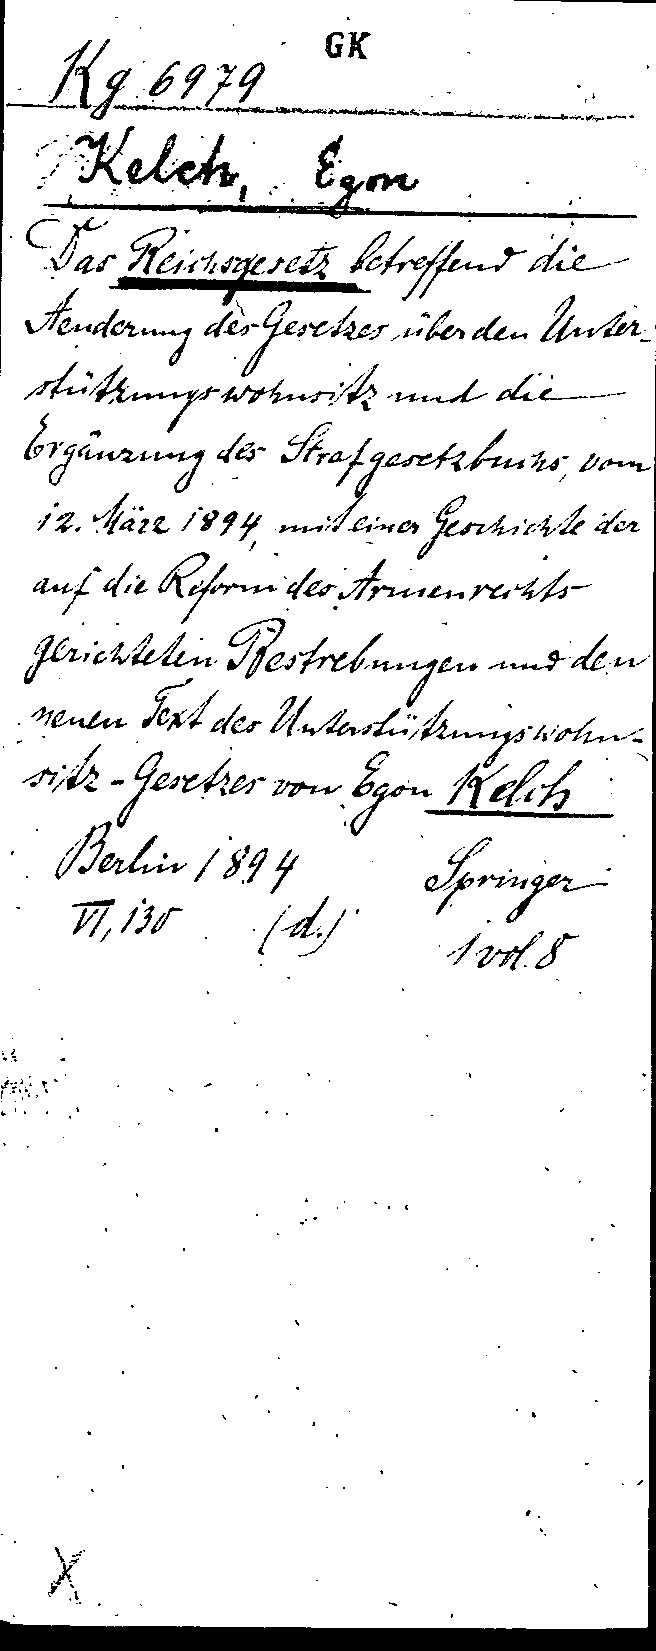 GK
Kg 6979
Kelch, Egon
Das Reichsgesetz betreffend die
Aenderung des Gesetzes über den Unter-
stützungswohnsitz und die
Ergänzung des Strafgesetzbuchs, vom
12. März 1894, mit einer Geschichte der
auf die Reform des Armenrechts
gerichteten Bestrebungen und den
neuen Text des Unterstützungswohn-
sitz-Gesetzes von Egon Kelch
Berlin 1894 Springer
VI, 130 (d.) 1 vol. 8
X